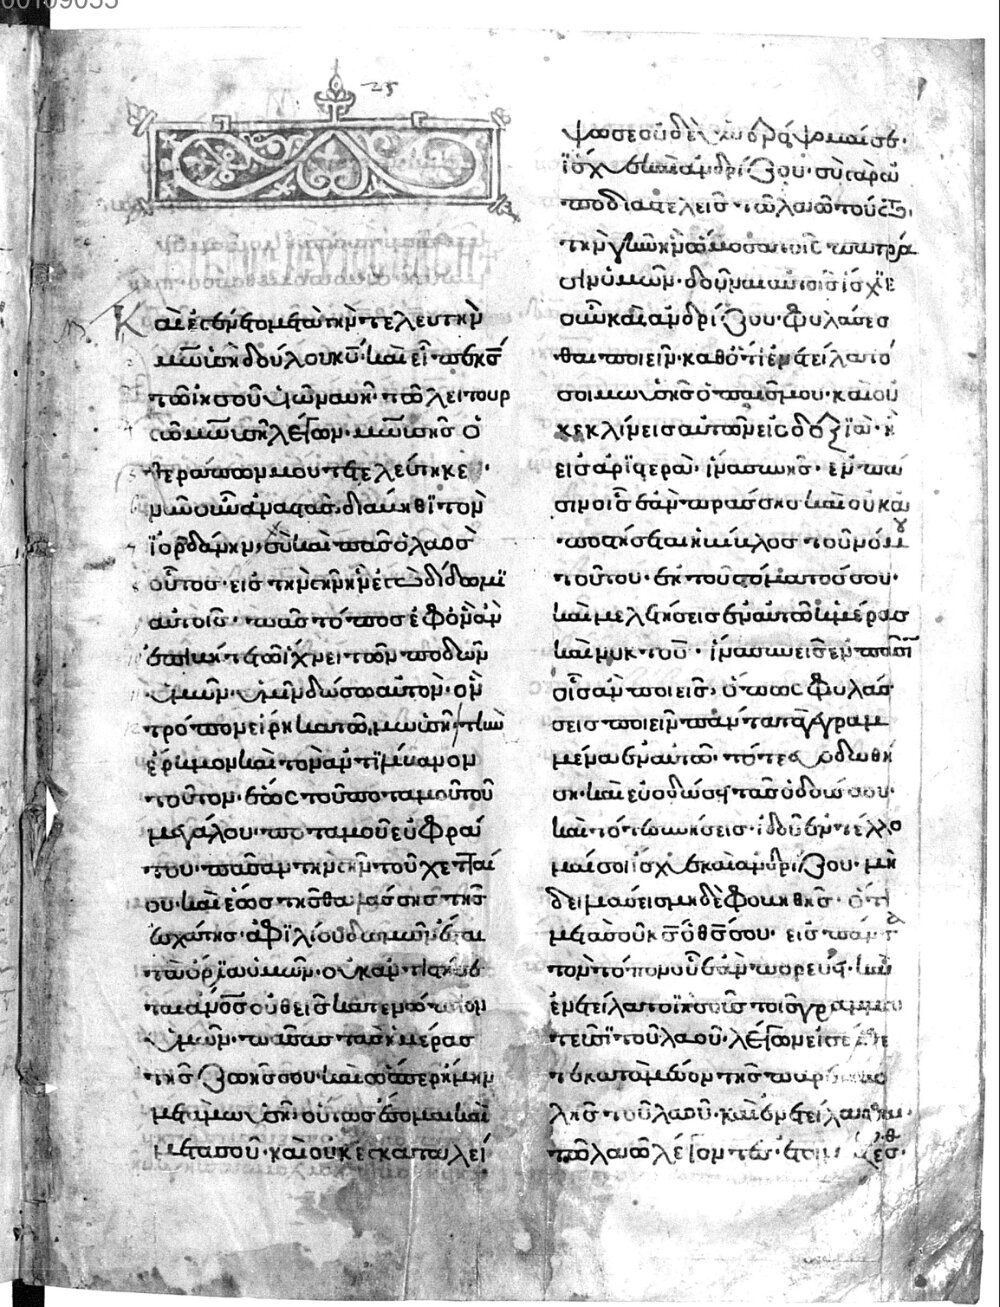 00109055
25
Καὶ ἐγένετο μετὰ τὴν τελευτὴν
μωυσῆ δούλου κυ· καὶ εἶπεν κς
τῶ ἰησοῦ υἱῶ ναυῆ· τῶ λειτουρ
γῶ μωυσῆ λέγων· μωυσῆς ὁ
θεράπων μου τετελεύτηκε·
νῦν οὖν ἀναστὰς διάβηθι τὸν
ἰορδάνην, σὺ καὶ πᾶς ὁ λαὸς
οὗτος· εἰς τὴν γῆν ἣν ἐγὼ δίδωμι
αὐτοῖς· πᾶς τόπος ἐφ ὃν ἂν
ἐπιβῆτε τῶ ἴχνει τῶν ποδῶν
ὑμῶν· ὑμῖν δώσω αὐτόν· ὃν
τρόπον εἴρηκα τῶ μωυσῆ· τὴν
ἔρημον καὶ τὸν ἀντιλίβανον
τοῦτον· ἕως τοῦ ποταμοῦ τοῦ
μεγάλου· ποταμοῦ εὐφρά
του· πᾶσαν τὴν γῆν τοῦ χετταί
ου· καὶ ἕως τῆς θαλάσσης τῆς
ἐσχάτης· ἀφ ἡλίου δυσμῶν ἔσται
τὰ ὅρια ὑμῶν· οὐκ ἀντιστήσε
ται ἄνος οὐθεὶς κατενώπιον
ὑμῶν· πάσας τὰς ἡμέρας
τῆς ζωῆς σου· καὶ ὥσπερ ἤμην
μετὰ μωυσῆ· οὕτως ἔσομαι καὶ
μετὰ σοῦ· καὶ οὐκ ἐγκαταλεί
ψω σε οὐδὲ ὑπερόψομαί σε·
ἴσχυε καὶ ἀνδρίζου· σὺ γὰρ ἀ
ποδιαστελεῖς τῶ λαῶ τούτω
τὴν γῆν ἣν ὤμοσα τοῖς πατρά
σιν ὑμῶν· δοῦναι αὐτοῖς· ἴσχυε
οὖν καὶ ἀνδρίζου· φυλάσσεσ
θαι ποιεῖν· καθότι ἐνετείλατό
σοι μωυσῆς ὁ παῖς μου· καὶ οὐ
κ ἐκκλινεῖς ἀπ αὐτῶν εἰς δεξιὰ· ἢ
εἰς ἀριστερά· ἵνα συνῆς· ἐν πᾶ
σιν οἷς ἐὰν πράσσης· καὶ οὐκ ἀ
ποστήσεται ἡ βίβλος τοῦ νόμου
τούτου· ἐκ τοῦ στόματός σου·
καὶ μελετήσεις ἐν αὐτῶ ἡμέρας
καὶ νυκτός· ἵνα συνῆς ἐν πᾶσιν
οἷς ἂν ποιεῖς· ὅπως φυλάσ
σεις ποιεῖν πάντα τὰ γεγραμ
μένα ἐν αὐτῶ· τότε εὐοδωθή
ση· καὶ εὐοδώσει τὰς ὁδούς σου·
καὶ τότε συνήσεις· ἰδοὺ ἐντέλλο
μαί σοι ἴσχυε καὶ ἀνδρίζου· μὴ
δειλιάσεις μηδὲ φοβηθῆς· ὅτι
μετὰ σοῦ κς ὁ θς σου· εἰς πάντα
τὸν τόπον οὗ ἐὰν πορεύη· καὶ
ἐνετείλατο ἰησοῦς τοῖς γραμμα
τεῦσι τοῦ λαοῦ· λέγων εἰσέλθε
τε κατὰ μέσον τῆς παρεμβο
λῆς τοῦ λαοῦ· καὶ ἐντείλασθε
τῶ λαῶ λέγοντες· ἑτοιμάζεσθ